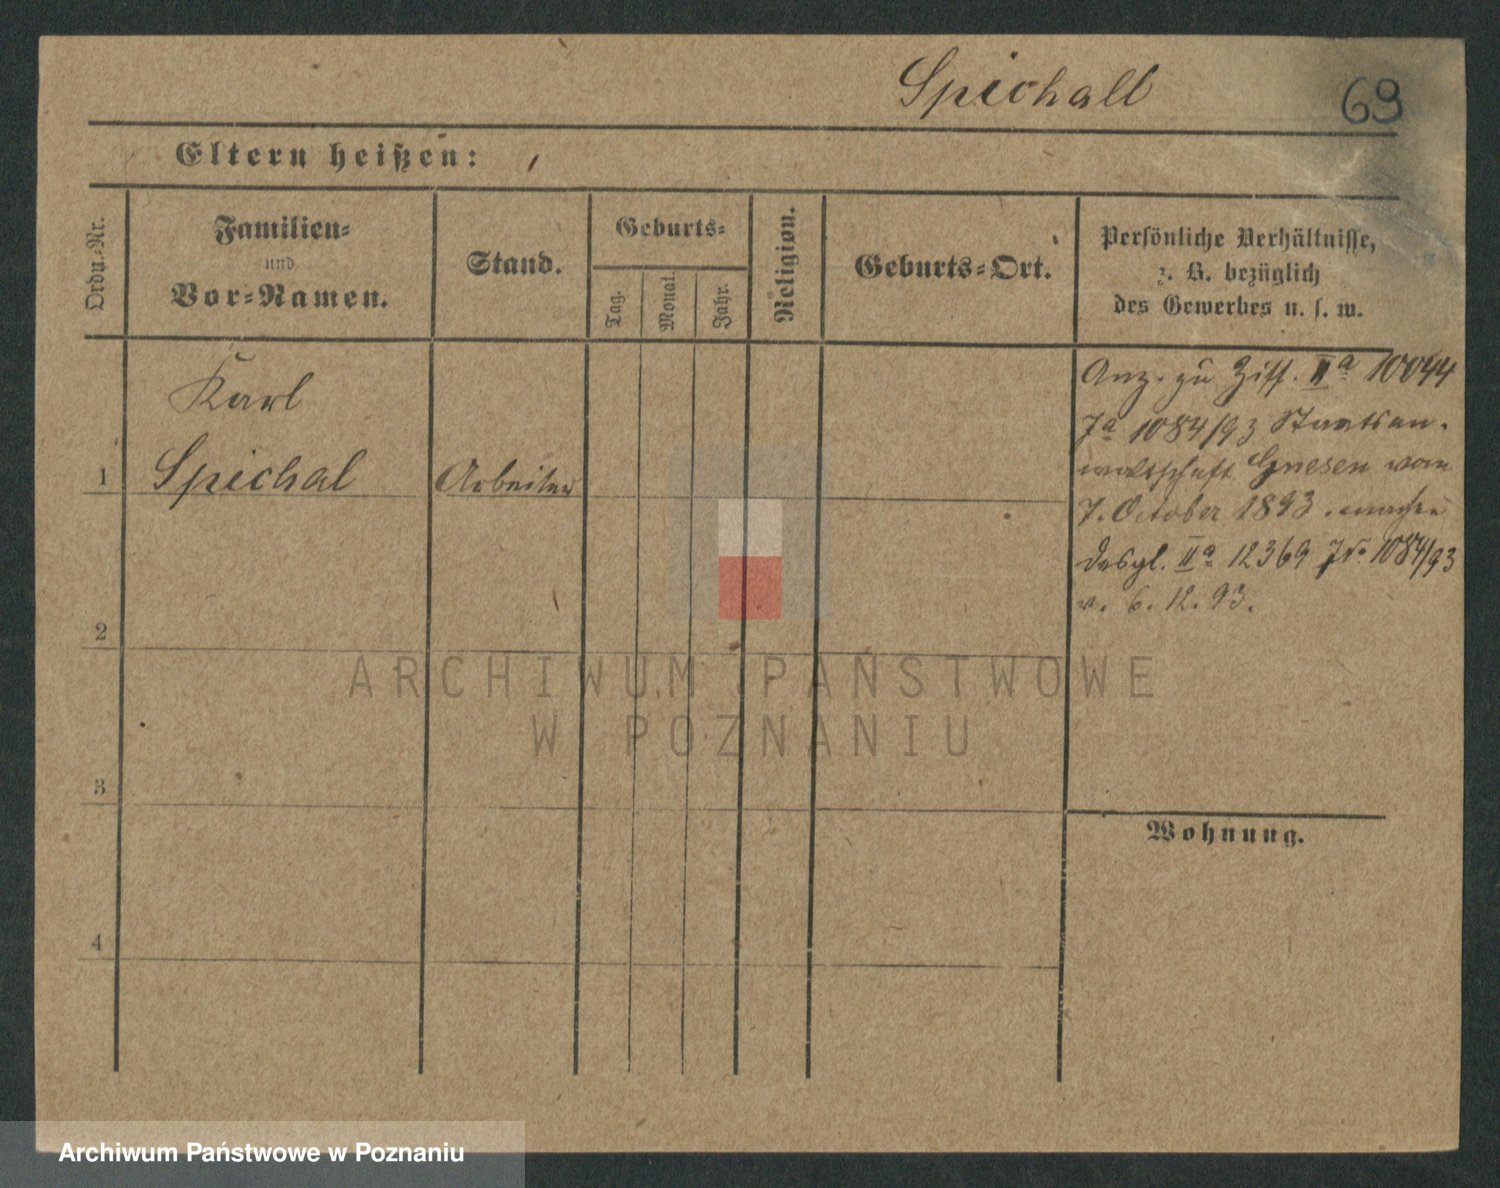 Spichall
69
Eltern heißen:
Ordn.-Nr.
Familien-
und
Vor-Namen.
Stand.
Geburts-
Tag.
Monat.
Jahr.
Religion.
Geburts-Ort.
Persönliche Verhältnisse,
z. B. bezüglich
des Gewerbes u. s. w.
Karl
1 Spichal
Arbeiter
Anz. zu Ziff. IIa 10044
Ja 1084/93 Staatsan-
waltschaft Gnesen vom
7. October 1893.
desgl. IIa 12369 1084/93
v. 6. 12. 93.
2
3
4
Wohnung.
ARCHIWUM PAŃSTWOWE
W POZNANIU
Archiwum Państwowe w Poznaniu